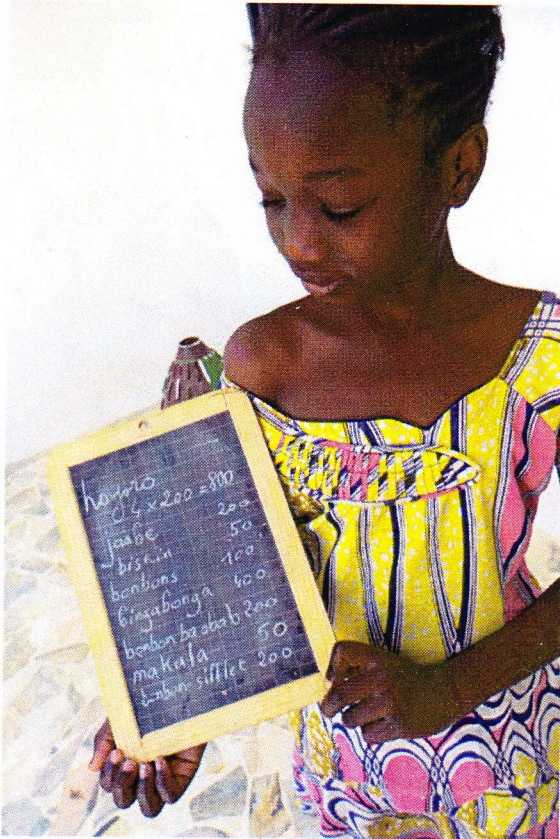 hojoro
4 x 200 = 800
jaabe 200
biskin 50
bonbons 100
bingabonga 400
bonbon baobab 200
makala 50
bonbon sifflet 200